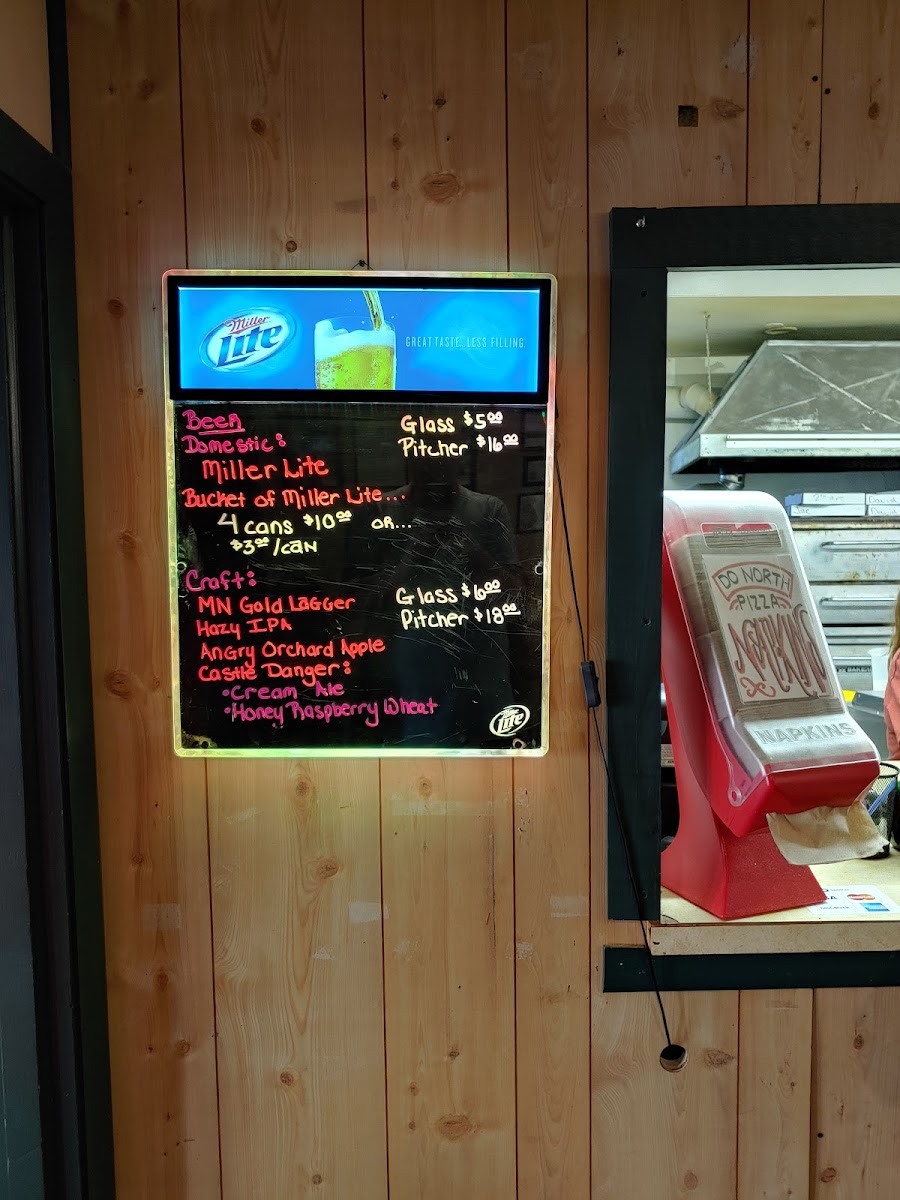 Miller
Lite
GREAT TASTE...LESS FILLING.
Beer
Domestic:
Glass $5.00
Pitcher $16.00
Miller Lite
Bucket of Miller Lite...
4 cans $10.00 OR...
$3.00/can
Craft:
Glass $6.00
Pitcher $18.00
MN Gold Lagger
Hazy IPA
Angry Orchard Apple
Castle Danger:
•Cream Ale
•Honey Raspberry Wheat
Lite
DO NORTH
PIZZA
NAPKINS
NAPKINS